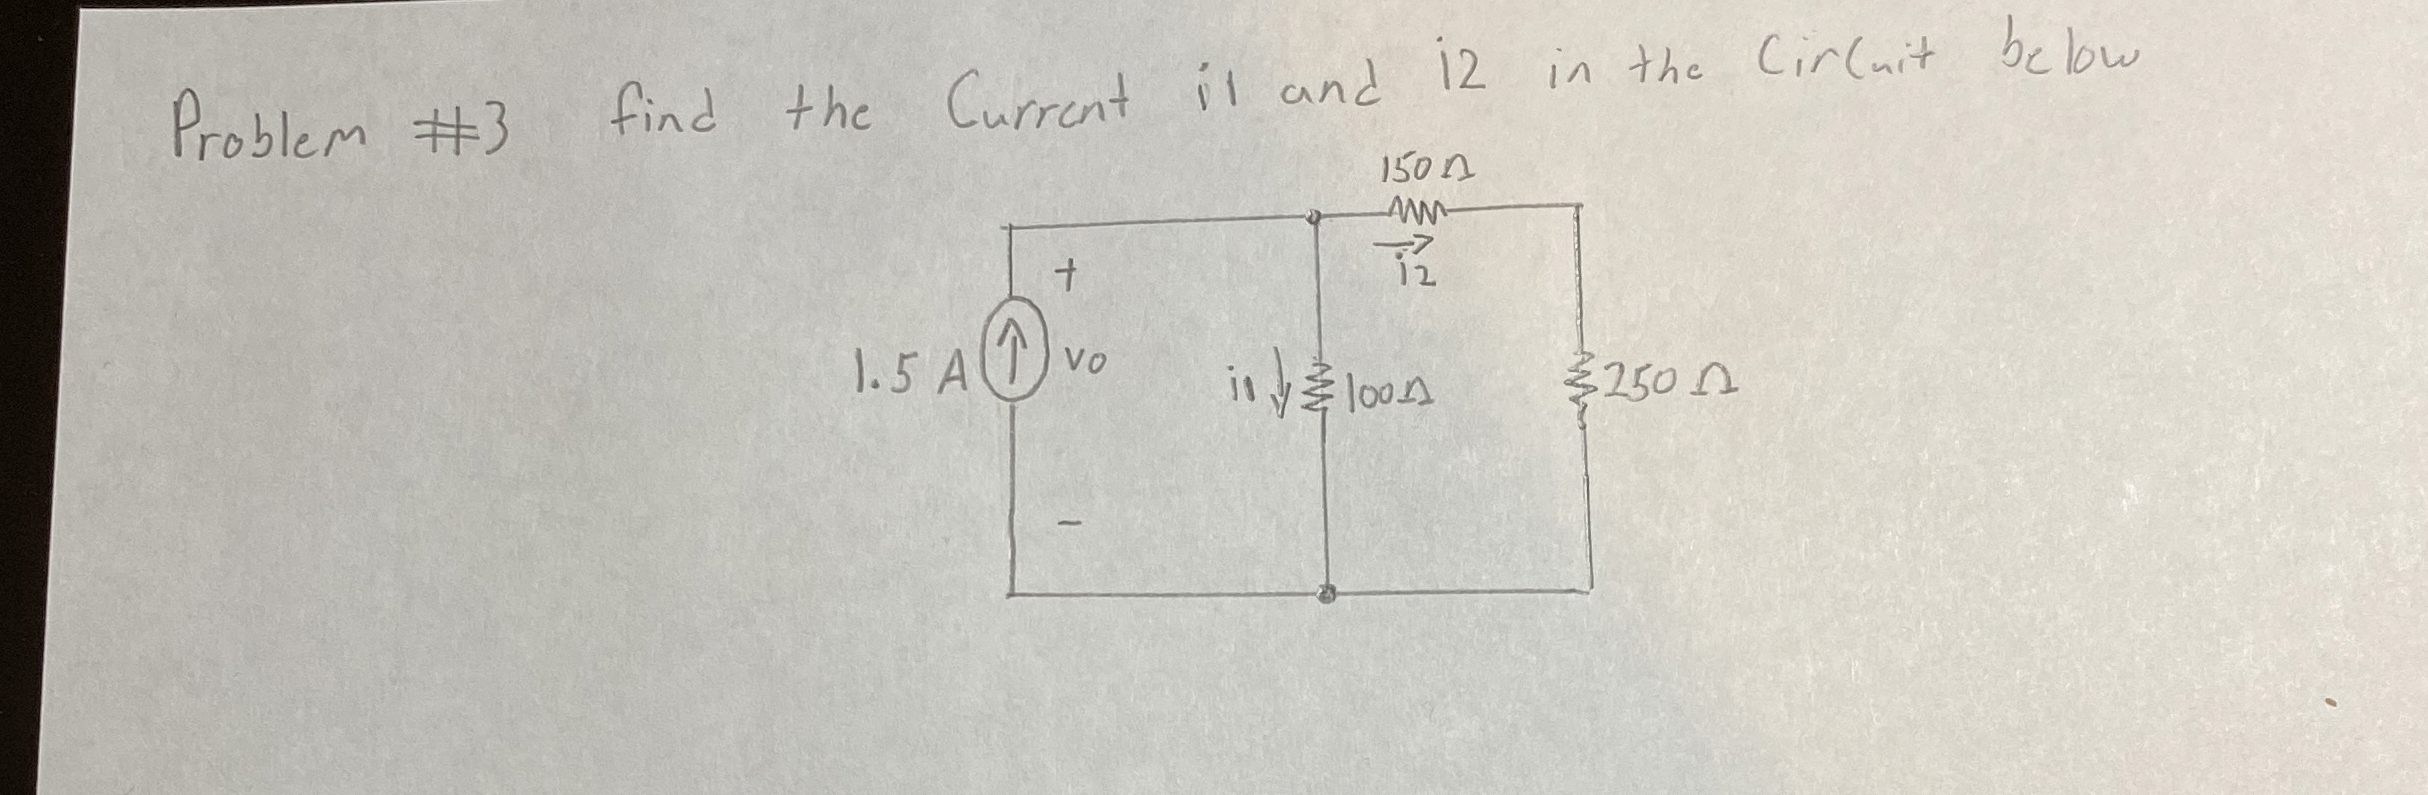 Problem #3 find the Current i1 and i2 in the Circuit below
150 Ω
i2
+
1.5 A vo
i1 100Ω
250 Ω
-